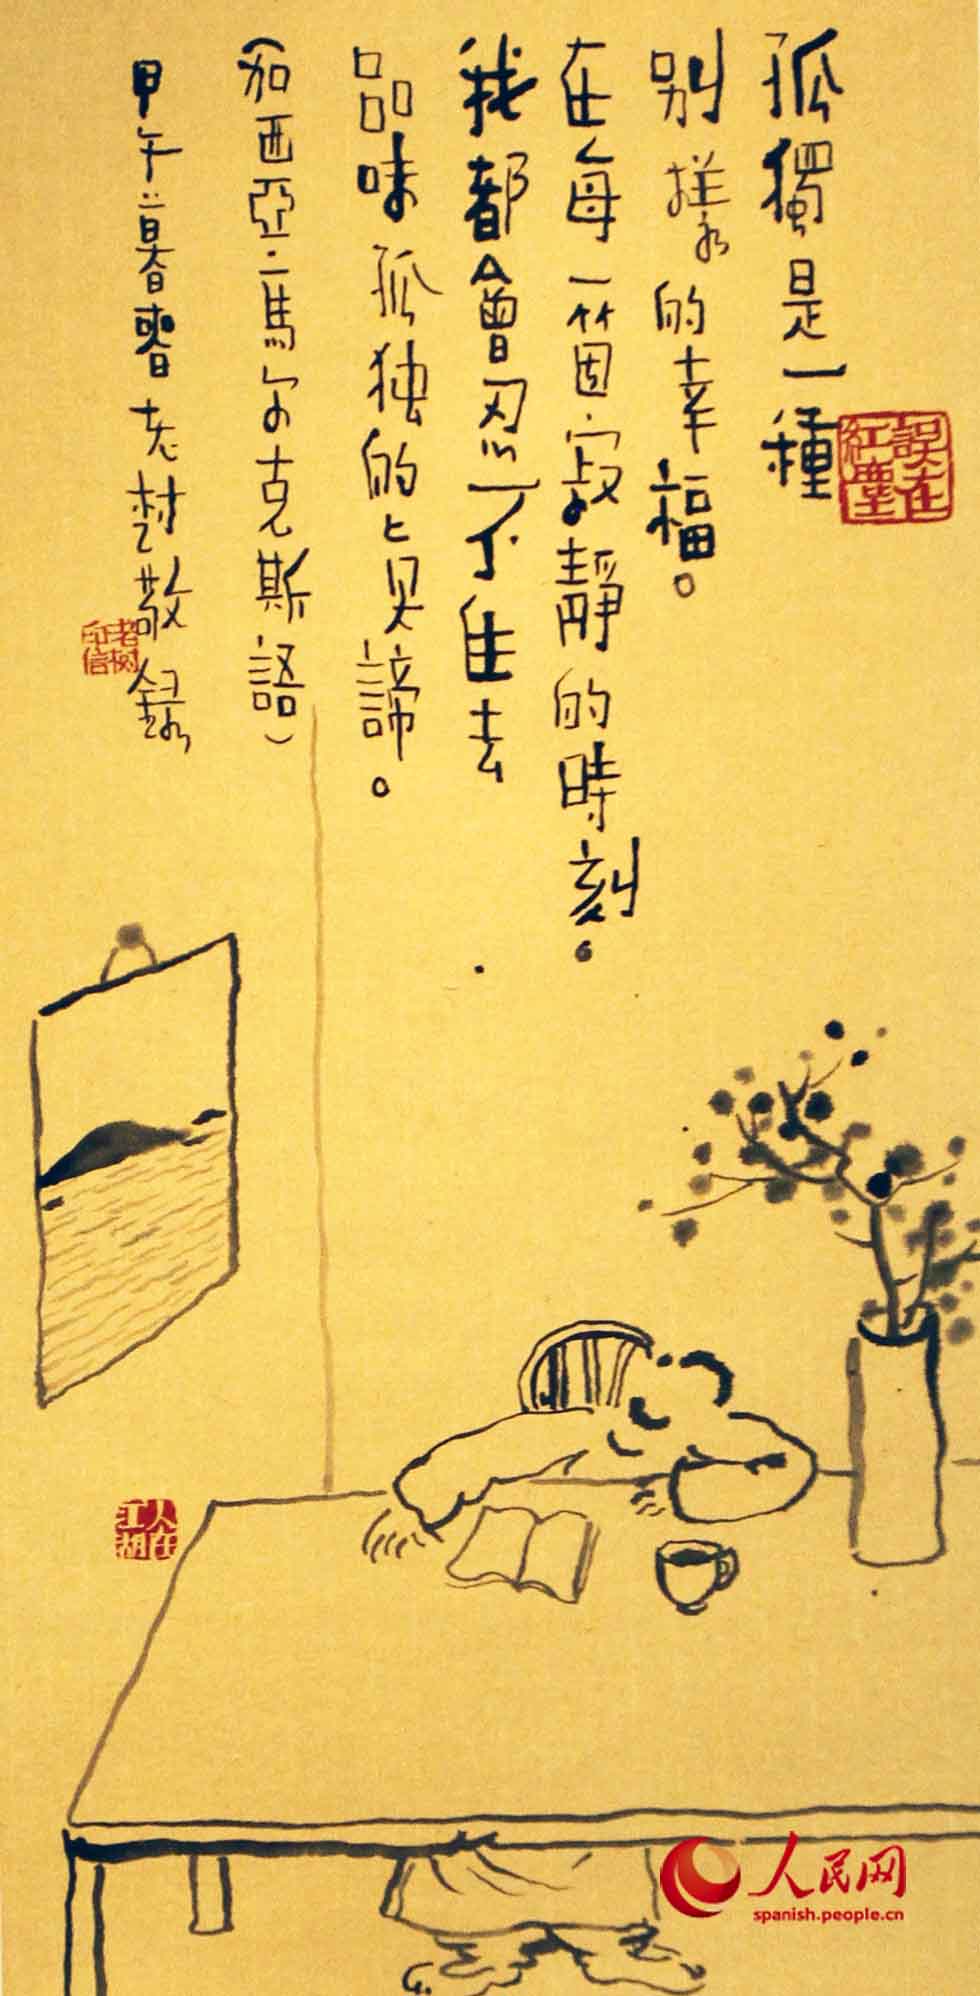 孤獨是一種
别樣的幸福。
在每一箇寂靜的時刻。
我都會忍不住去
品味孤独的真諦。
(加西亞·馬尔克斯語)
甲午暮春老树敬録
誤在紅塵
老树印信
人在江湖
人民网
spanish.people.cn